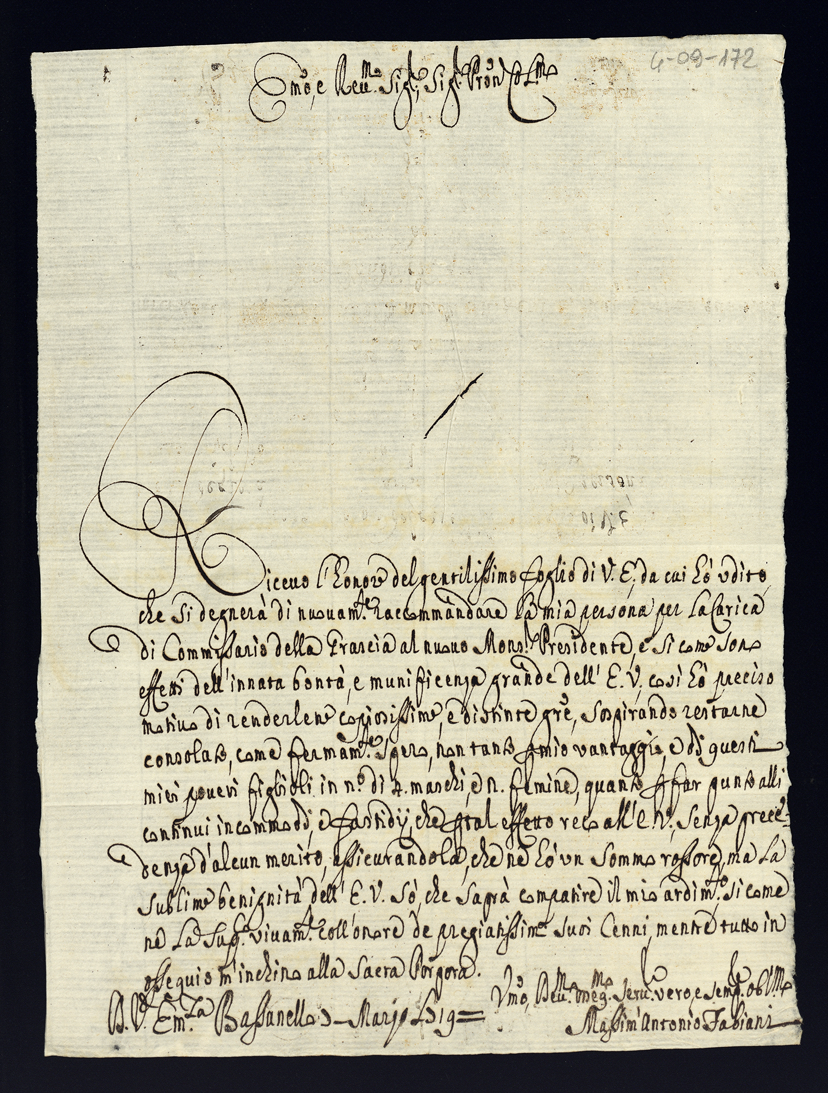 4-09-172
Emo, e Reu.mo Sig.re, Sig.re Pron Col.mo
Riceuo l'honore del gentilissimo foglio di V. E., da cui hò vdito,
che si degnerà di nuouam.te raccommandare la mia persona per la Carica
di Commissario della Grascia al nuouo Mons.r Presidente, e si come sono
effetti dell'innata bontà, e munificenza grande dell' E. V., cosi hò preciso
motiuo di renderlene copiosissime, e distinte gre, sospirando restarne
consolato, come fermam.te spero, non tanto p mio vantaggio, e di questi
miei poueri figlioli in n.o di 4. maschi, e n. femine, quanto p far punto alli
continui incommodi, e fastidij, che p tal effetto reco all'E. V., senza prece-
denza d'alcun merito, assicurandola, che nè hò vn sommo rossore, ma la
sublime benignità dell' E. V. sò, che saprà compatire il mio ardim.to, si come
nè la sup.co viuam.te coll'onore de pregiatissimi suoi Cenni, mentre tutto in
ossequio m'inchino alla Sacra Porpora.
Vmo, Deu.mo Seru.re vero, e semp.e obl.mo
D. V. Em.za Bassanello Marzo
Massim'Antonio Fabiani